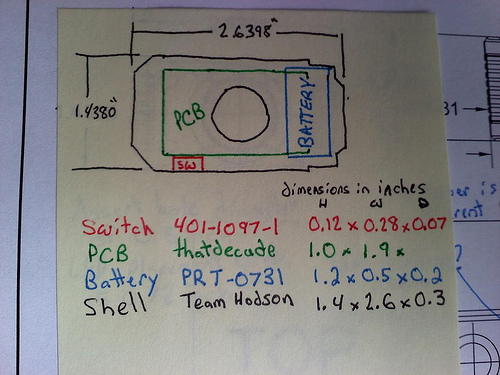 2.6398"
1.4380"
PCB
BATTERY
SW
31
dimensions in inches
H W D
Switch 401-1097-1 0.12 x 0.28 x 0.07
PCB thatdecade 1.0 x 1.9 x
Battery PRT-0731 1.2 x 0.5 x 0.2
Shell Team Hodson 1.4 x 2.6 x 0.3
is
rent